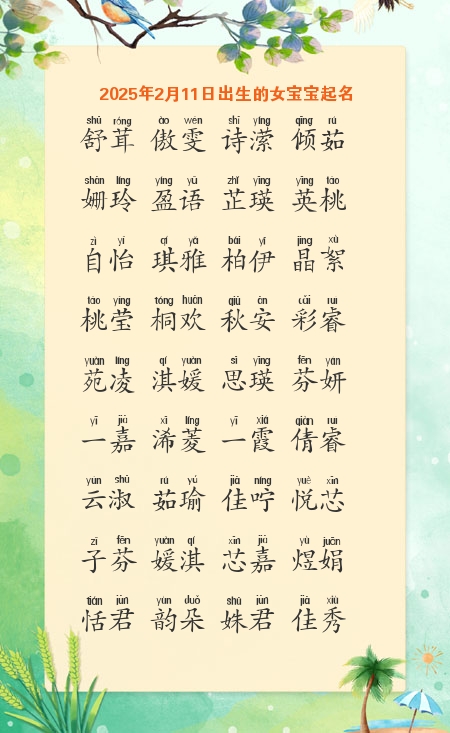 2025年2月11日出生的女宝宝起名
shū róng ào wén shī yíng qīng rú
舒茸 傲雯 诗潆 倾茹
shān líng yíng yǔ zhǐ yīng yīng táo
姗玲 盈语 芷瑛 英桃
zì yí qí yǎ bǎi yī jīng xù
自怡 琪雅 柏伊 晶絮
táo yíng tóng huān qiū ān cǎi ruì
桃莹 桐欢 秋安 彩睿
yuàn líng qí yuán sī yīng fēn yán
苑凌 淇媛 思瑛 芬妍
yī jiā xī líng yī xiá qiàn ruì
一嘉 浠菱 一霞 倩睿
yún shū rú yú jiā níng yuè xīn
云淑 茹瑜 佳咛 悦芯
zǐ fēn yuán qí xīn jiā yù juān
子芬 媛淇 芯嘉 煜娟
tián jūn yùn duǒ shū jūn jiā xiù
恬君 韵朵 姝君 佳秀